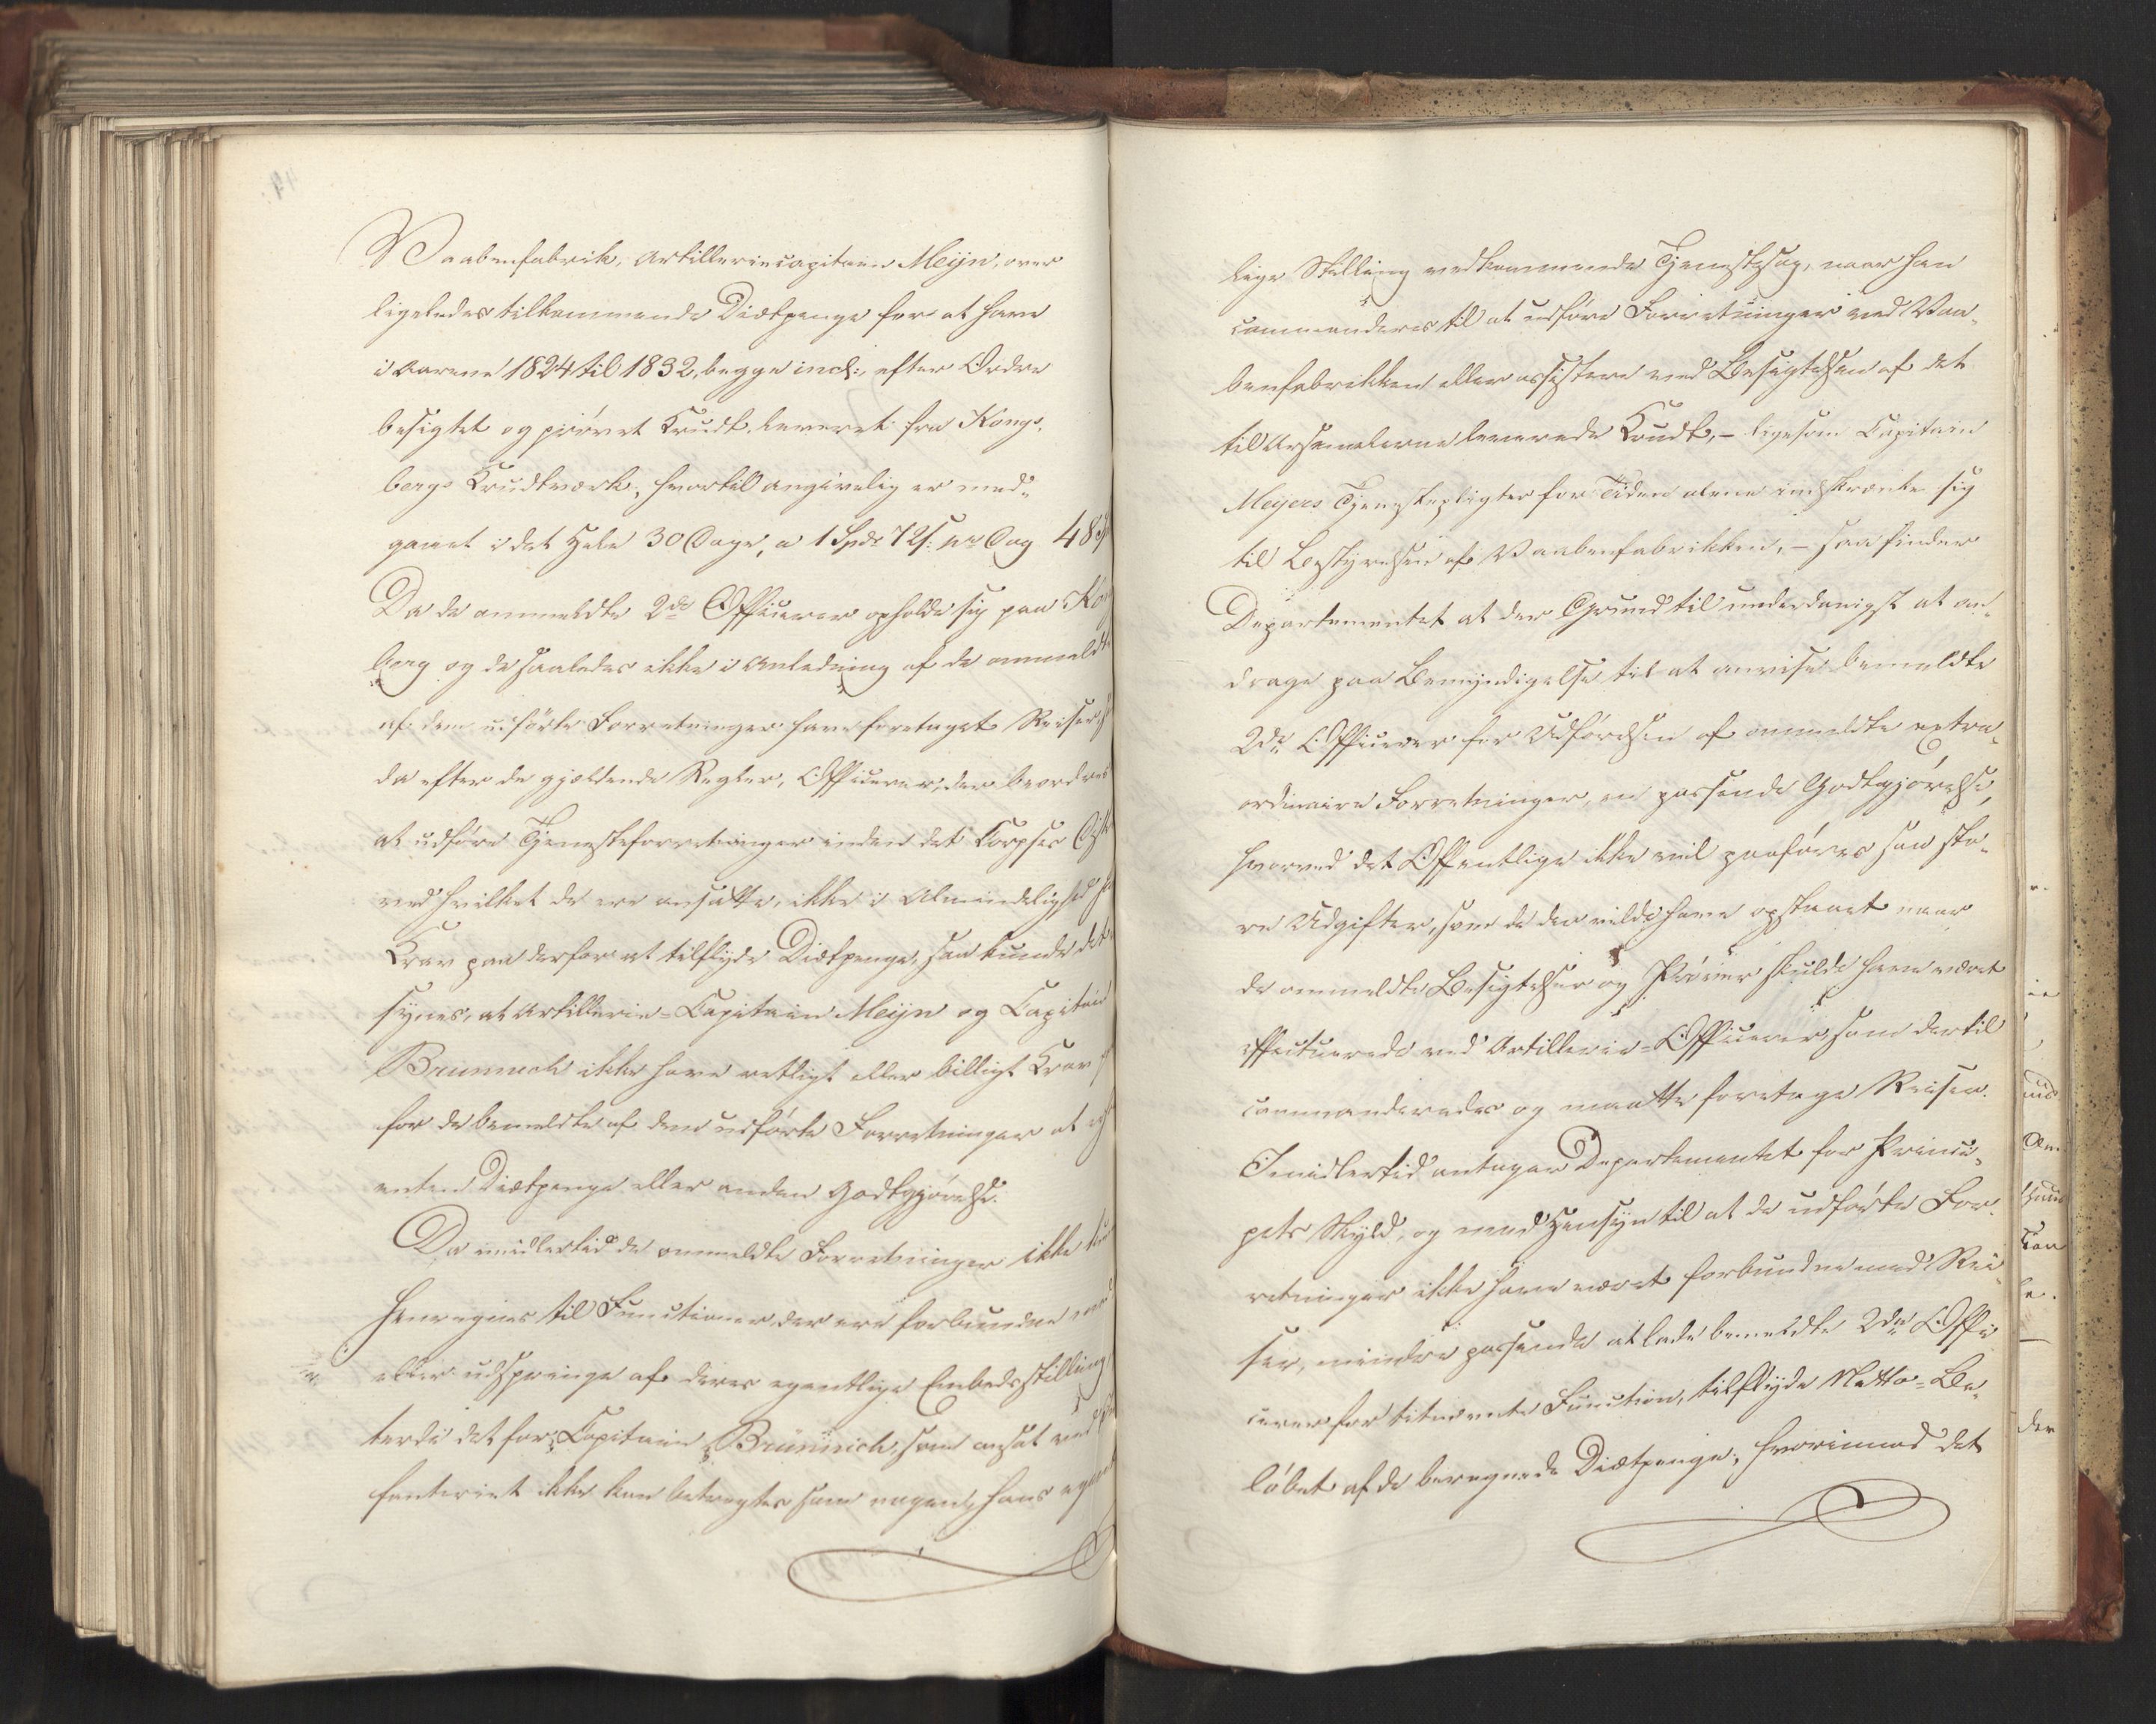 Vaabenfabrik, Artilleriecapitain Meijn, over
ligeledes tilkommende Diætpenge for at have
i Aarene 1824 til 1832, begge incl:, efter Ordre
besigtet og prøvet Krudt, leveret fra Kongs-
bergs Krudtværk, hvortil angivelig er med-
gaaet i det Hele 30 Dage, a 1 Spd 72 s: pr Dag 48 Sp
Da de ommeldte 2de Officierer opholde sig paa Ko
berg og de saaledes ikke i Anledning af de ommeldt
af dem udførte Forretninger have foretaget Reiser
da efter de gjældende Regler, Officierer, der beordres
at udføre Tjenesteforretninger inden det Corpses
ved hvilket de ere ansatte, ikke i Almindelighed
Krav paa derfor at tilflyde Diætpenge, saa kunde det
synes, at Artillerie-Capitain Meijn og Capitain
Brünnich ikke have retligt eller billigt Krav
for de bemeldte af dem udførte Forretninger at
enten Diætpenge eller anden Godtgjørelse.
Da imidlertid de ommeldte Forretninger ikke
henregnes til Functioner der ere forbundne med
eller udspringe af deres egentlige Embedsstilling
terdi det for Capitain Brünnich, som ansat ved
fanteriet ikke kan betragtes som nogen, hans
lige Stilling vedkommende Tjenestesag, naar han
commanderes til at udføre Forretninger ved Vaa-
benfabrikken eller assistere ved Besigtelsen af det
til Arsenalerne leverede Krudt, - ligesom Capitain
Meyers Tjenestepligter for Tiden alene indskrænke sig
til Bestyrelsen af Vaabenfabrikken, - saa finder
Departementet at der Grund til underdanigst at an-
drage paa Bemyndigelse til at anvise bemeldte
2de Officierer for Udførelsen af ommeldte extra-
ordinaire Forretninger, en passende Godtgjørelse,
hvorved det Offentlige ikke vil paaføres saa sto-
re Udgifter, som de der vilde have opstaaet naar
de ommeldte Besigtelser og Prøver skulde have været
effectuerede ved Artillerie-Officierer, som dertil
commanderedes og maatte foretage Reisen.
Imidlertid antager Departementet for Princi-
pets Skyld, og med Hensyn til at de udførte For-
retninger ikke have været forbundne med Rei
ser, mindre passende at lade bemeldte 2de Offi
cierer for bemeldte Function, tilflyde Netto-Be-
løbet af de beregnede Diætpenge; hvorimod det